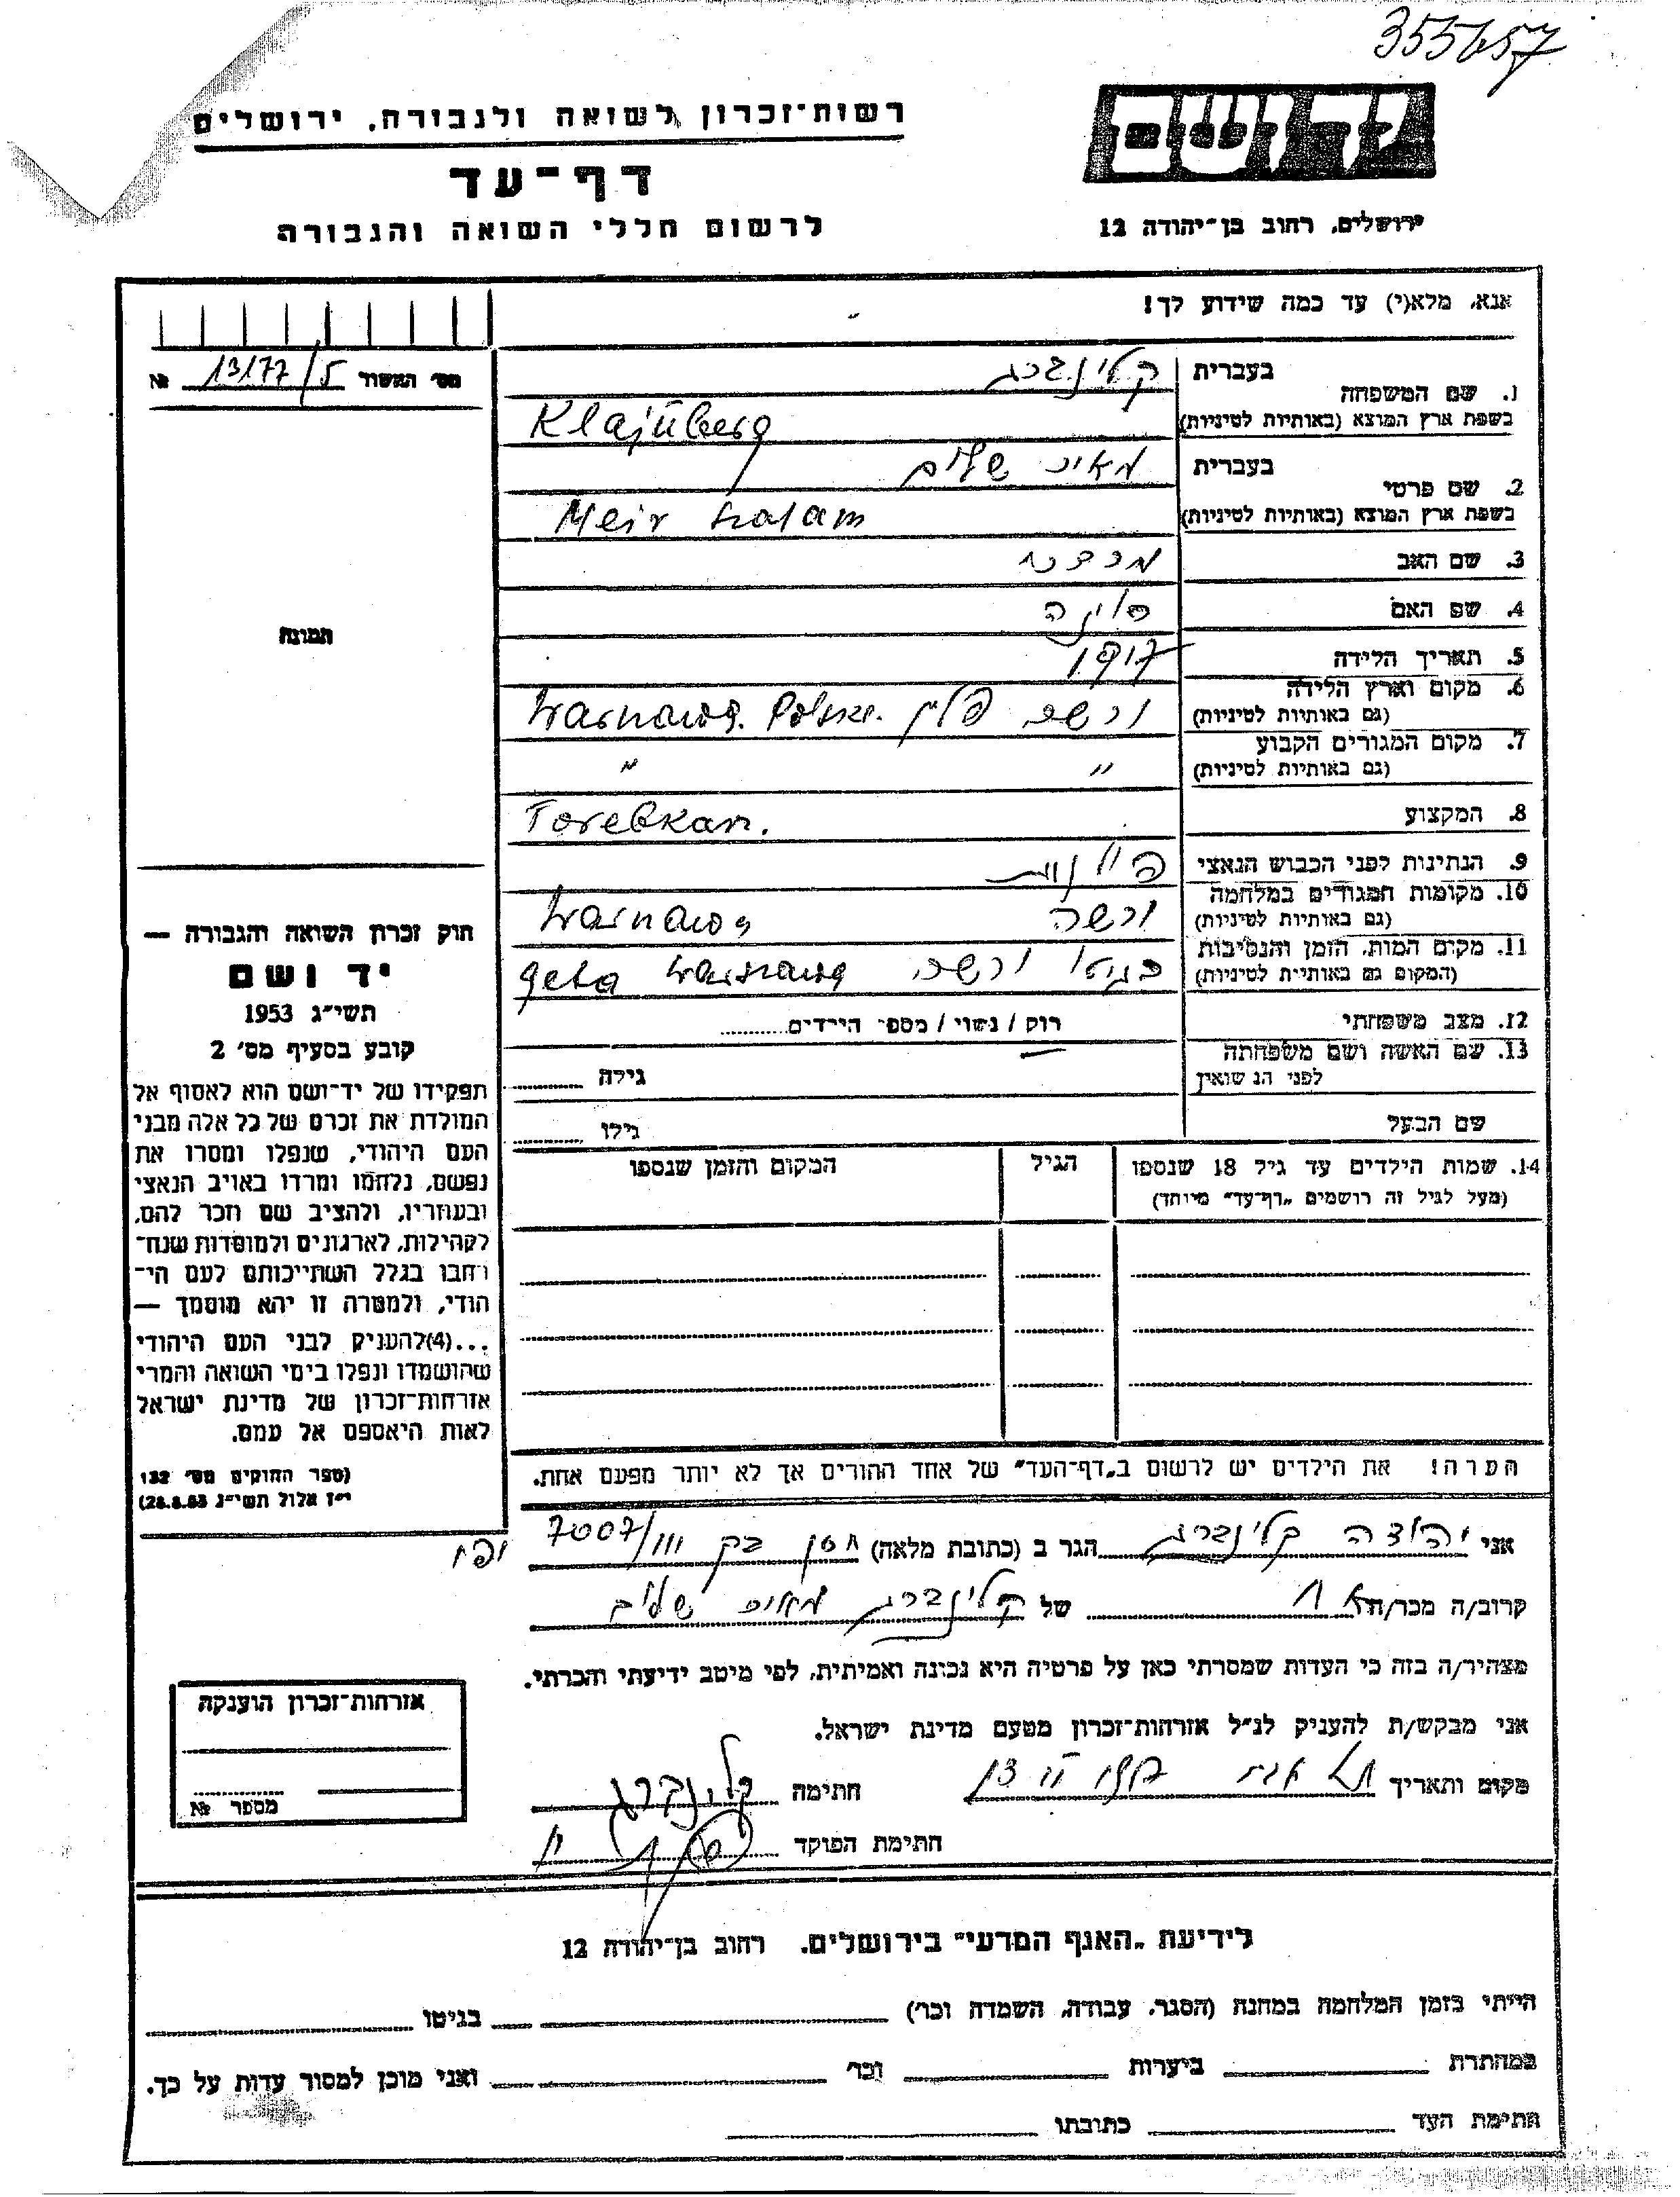 355657
יד ושם
רשות־זכרון לשואה ולגבורה, ירושלים
דף־עד
לרשום חללי השואה והגבורה
ירושלים, רחוב בן־יהודה 12
אנא, מלא(י) עד כמה שידוע לך!
מס׳ האשור 13177/5 №
תמונה
1. שם המשפחה
בעברית קלינברג
בשפת ארץ המוצא (באותיות לטיניות) Klajnberg
2. שם פרטי
בעברית מאיר שלום
בשפת ארץ המוצא (באותיות לטיניות) Meir Szalam
3. שם האב מרדכי
4. שם האם
5. תאריך הלידה
6. מקום וארץ הלידה
(גם באותיות לטיניות) ורשה פולין Warszawa. Polska.
7. מקום המגורים הקבוע
(גם באותיות לטיניות) " "
8. המקצוע Torebkarz.
9. הנתינות לפני הכבוש הנאצי פולנית
10. מקומות המגורים במלחמה
(גם באותיות לטיניות) ורשה Warszawa
11. מקום המות, הזמן והנסיבות
(המקום גם באותיות לטיניות) בגיטו ורשה geto Warszawa
12. מצב משפחתי רוק / נשוי / מספר הילדים
13. שם האשה ושם משפחתה
לפני הנשואין גילה
שם הבעל גילו
14. שמות הילדים עד גיל 18 שנספו הגיל המקום והזמן שנספו
(מעל לגיל זה רושמים „דף־עד״ מיוחד)
הערה! את הילדים יש לרשום ב„דף־העד״ של אחד ההורים אך לא יותר מפעם אחת.
חוק זכרון השואה והגבורה —
יד ושם
תשי״ג 1953
קובע בסעיף מס׳ 2
תפקידו של יד־ושם הוא לאסוף אל
המולדת את זכרם של כל אלה מבני
העם היהודי, שנפלו ומסרו את
נפשם, נלחמו ומרדו באויב הנאצי
ובעוזריו, ולהציב שם וזכר להם,
לקהילות, לארגונים ולמוסדות שנח־
רבו בגלל השתייכותם לעם הי־
הודי, ולמטרה זו יהא מוסמך —
...(4)להעניק לבני העם היהודי
שהושמדו ונפלו בימי השואה והמרי
אזרחות־זכרון של מדינת ישראל
לאות היאספם אל עמם.
(ספר החוקים מס׳ 132
י״ז אלול תשי״ג 28.8.53)
אני יהודה קלינברג הגר ב (כתובת מלאה) חסן בק 7007/III יפו
קרוב/ה מכר/ה אח של קלינברג מאיר שלום
מצהיר/ה בזה כי העדות שמסרתי כאן על פרטיה היא נכונה ואמיתית, לפי מיטב ידיעתי והכרתי.
אני מבקש/ת להעניק לנ״ל אזרחות־זכרון מטעם מדינת ישראל.
מקום ותאריך תל אביב חתימה קלינברג
חתימת הפוקד
אזרחות־זכרון הוענקה
מספר №
לידיעת „האגף המדעי״ בירושלים. רחוב בן־יהודה 12
הייתי בזמן המלחמה במחנה (הסגר, עבודה, השמדה וכר׳) בגיטו
במחתרת ביערות וכר׳ ואני מוכן למסור עדות על כך.
חתימת העד כתובתו